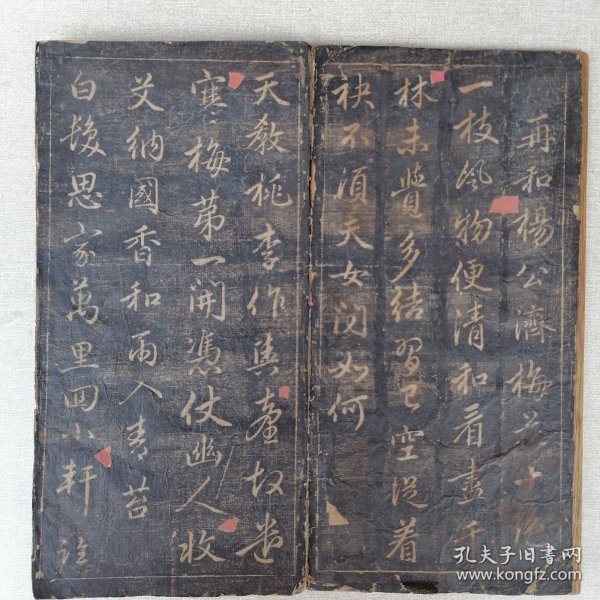 再和楊公濟梅花十絕
一枝風物便清和看盡千
林未覺多結習已空從着
袂不須天女問如何
天教桃李作輿臺故遣
寒梅第一開憑仗幽人收
艾納國香和雨入青苔
白髮思家萬里回小軒臨
孔夫子旧书网
www.kongfz.com